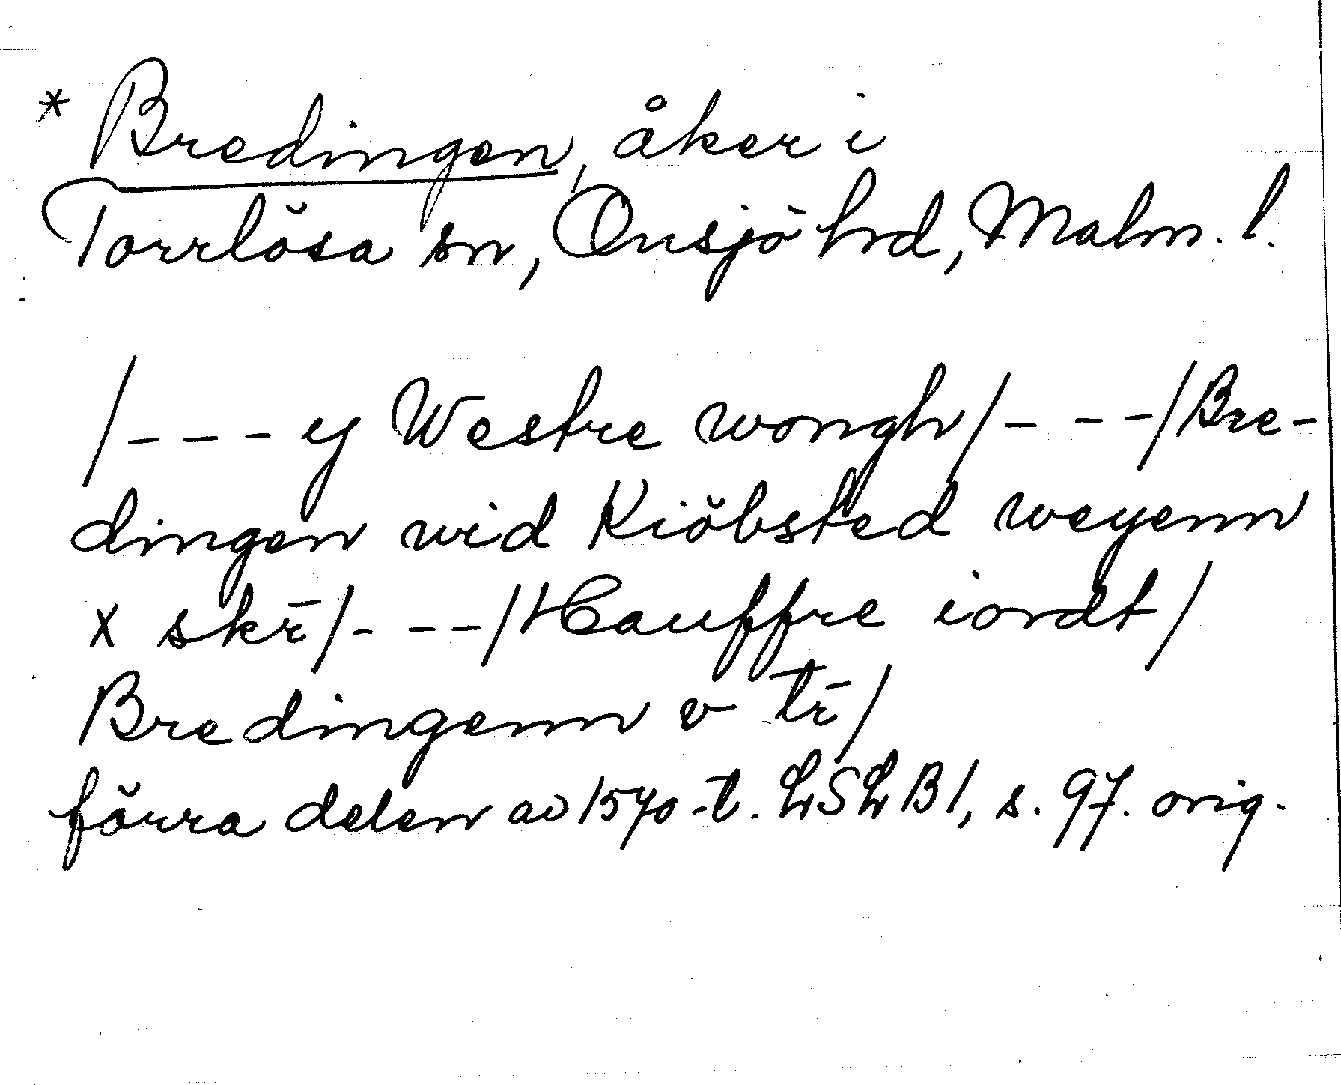 * Bredingen, åker i
Torrlösa sn, Onsjö hd, Malm. l.
/- - - y Westre wongh/- - -/Bre-
dingen wid Kiöbsted weyenn
x skr̄/- - -/Hauffre iordt/
Bredingenn v tr̄/
förra delen av 1570-t. LSLB1, s. 97. orig.